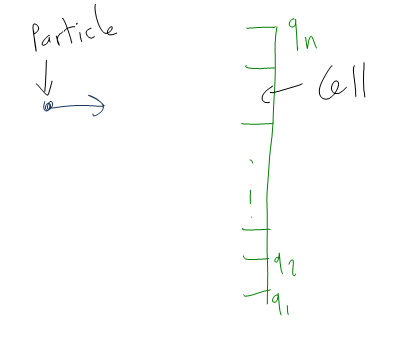 Particle
qn
Cell
q2
q1